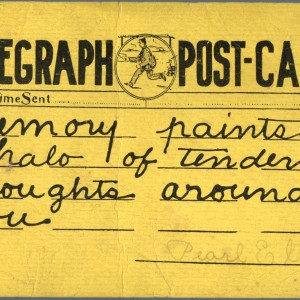 EGRAPH POST-CA
imeSent
emory paints
halo of tender
oughts around
ou
Pearl E